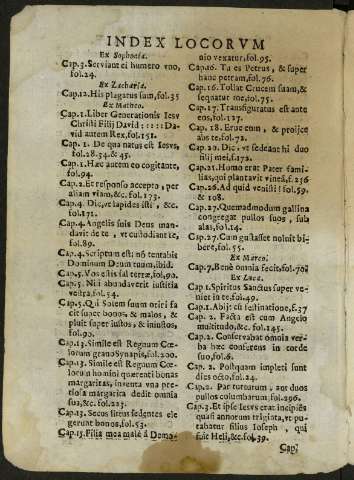 INDEX LOCORVM
Ex Sophonia.
Cap.3. Serviant ei humero uno,
fol.24.
Ex Zacharia.
Cap.12. His plagatus sum, fol.35
Ex Matheo.
Cap.1. Liber Generationis Iesv
Christi Filij David : : : : Da-
vid autem Rex, fol.151.
Cap. 1. De qua natus est Iesvs,
fol.28.34.& 45.
Cap.1. Hæc autem eo cogitante,
fol.94.
Cap.2. Et responso accepto, per
aliam viam, &c. fol.173.
Cap.4. Dic, vt lapides isti, &c.
fol.171.
Cap.4. Angelis suis Deus man-
davit de te, vt custodiant te,
fol.89.
Cap.4. Scriptum est: nõ tentabis
Dominum Deum tuum, ibid.
Cap.5. Vos estis sal terræ, fol.90.
Cap.5. Nisi abundaverit iustitia
vestra, fol.54.
Cap.5. Qui Solem suum oriri fa-
cit super bonos & malos, &
pluit super iustos, & iniustos,
fol.90.
Cap.13. Simile est Regnum Cœ-
lorum grano Synapis, fol.200.
Cap.13. Simile est Regnum Cœ-
lorum homini quærenti bonas
margaritas, inventa vna pre-
tiosa margarita dedit omnia
sua, &c. fol.223.
Cap.13. Secus litem sedentes ele
gerunt bonos, fol.53.
Cap.15. Filia mea malè à Dæmo-
nio vexatur, fol.95.
Cap.16. Tu es Petrus, & super
hanc petram, fol.76.
Cap.16. Tollat Crucem suam, &
sequatur me, fol.75.
Cap.17. Transfiguratus est ante
eos, fol.127.
Cap. 18. Erue eum, & proijce
abs te, fol.72.
Cap.20. Dic, vt sedeant hi duo
filij mei, f.172.
Cap.21. Homo erat Pater fami-
lias, qui plantavit vineã, f.256
Cap.26. Ad quid venisti? fol.59.
& 108.
Cap.27. Quemadmodum gallina
congregat pullos suos, sub
alas, fol.14.
Cap.27. Cum gustasset noluit bi-
bere, fol.55.
Ex Marco.
Cap.7. Benè omnia fecit, fol.70
Ex Luca.
Cap.1. Spiritus Sanctus super ve-
niet in te, fol.49.
Cap.1. Abijt cũ festinatione, f.37
Cap.2. Facta est cum Angelo
multitudo, &c. fol.145.
Cap.2. Conservabat omnia ver-
ba hæc conferens in corde
suo, fol.6.
Cap.2. Postquam impleti sunt
dies octo, fol.24.
Cap.2. Par turturum, aut duos
pullos columbarum, fol.296.
Cap.3. Et ipse Iesvs erat incipiẽs
quasi annorum triginta, vt pu-
tabatur filius Ioseph, qui
fuit Heli, &c. fol.39.
Cap.